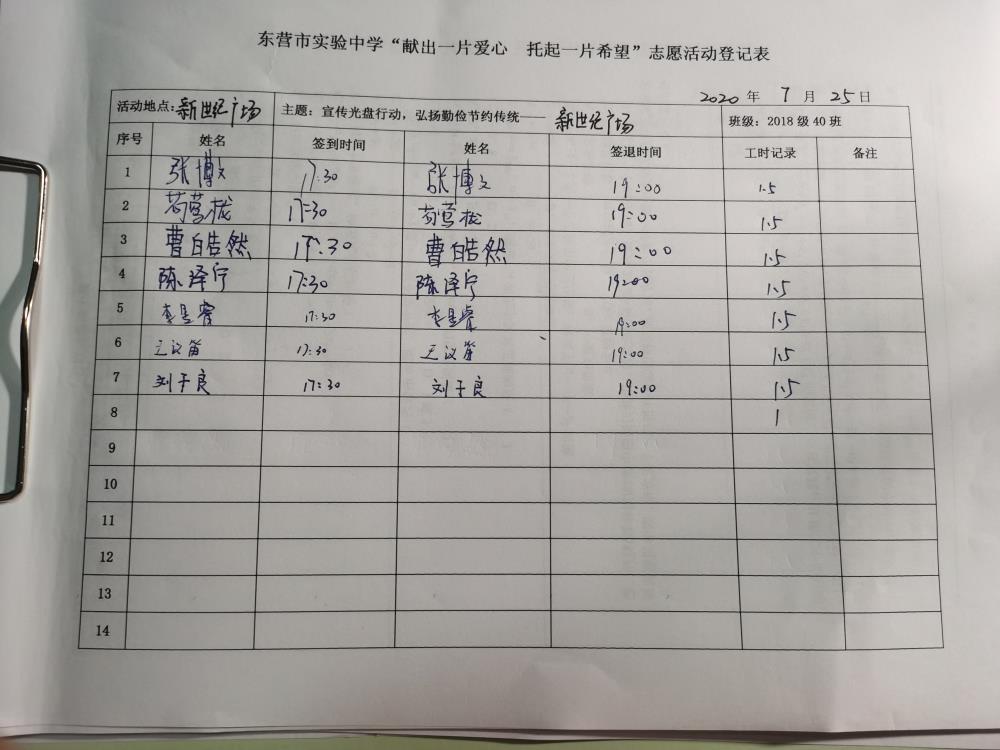 东营市实验中学“献出一片爱心 托起一片希望”志愿活动登记表
2020 年 7 月 25 日
活动地点：新世纪广场 主题：宣传光盘行动，弘扬勤俭节约传统—— 新世纪广场 班级：2018 级 40 班
序号 姓名 签到时间 姓名 签退时间 工时记录 备注
1 张博文 17:30 张博文 19:00 1.5
2 17:30 19:00 1.5
3 曹皓然 17:30 曹皓然 19:00 1.5
4 陈泽宁 17:30 陈泽宁 19:00 1.5
5 李昱睿 17:30 李昱睿 19:00 1.5
6 王议笛 17:30 王议笛 19:00 1.5
7 刘于良 17:30 刘于良 19:00 1.5
8 1
9
10
11
12
13
14